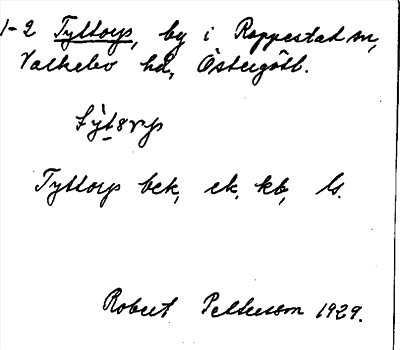 1-2 Tyttorp, by i Rappestad sn,
Valkebo hd, Östergötl.
Tyttorp bek, ek, kb, ls.
Robert Pettersson 1929.